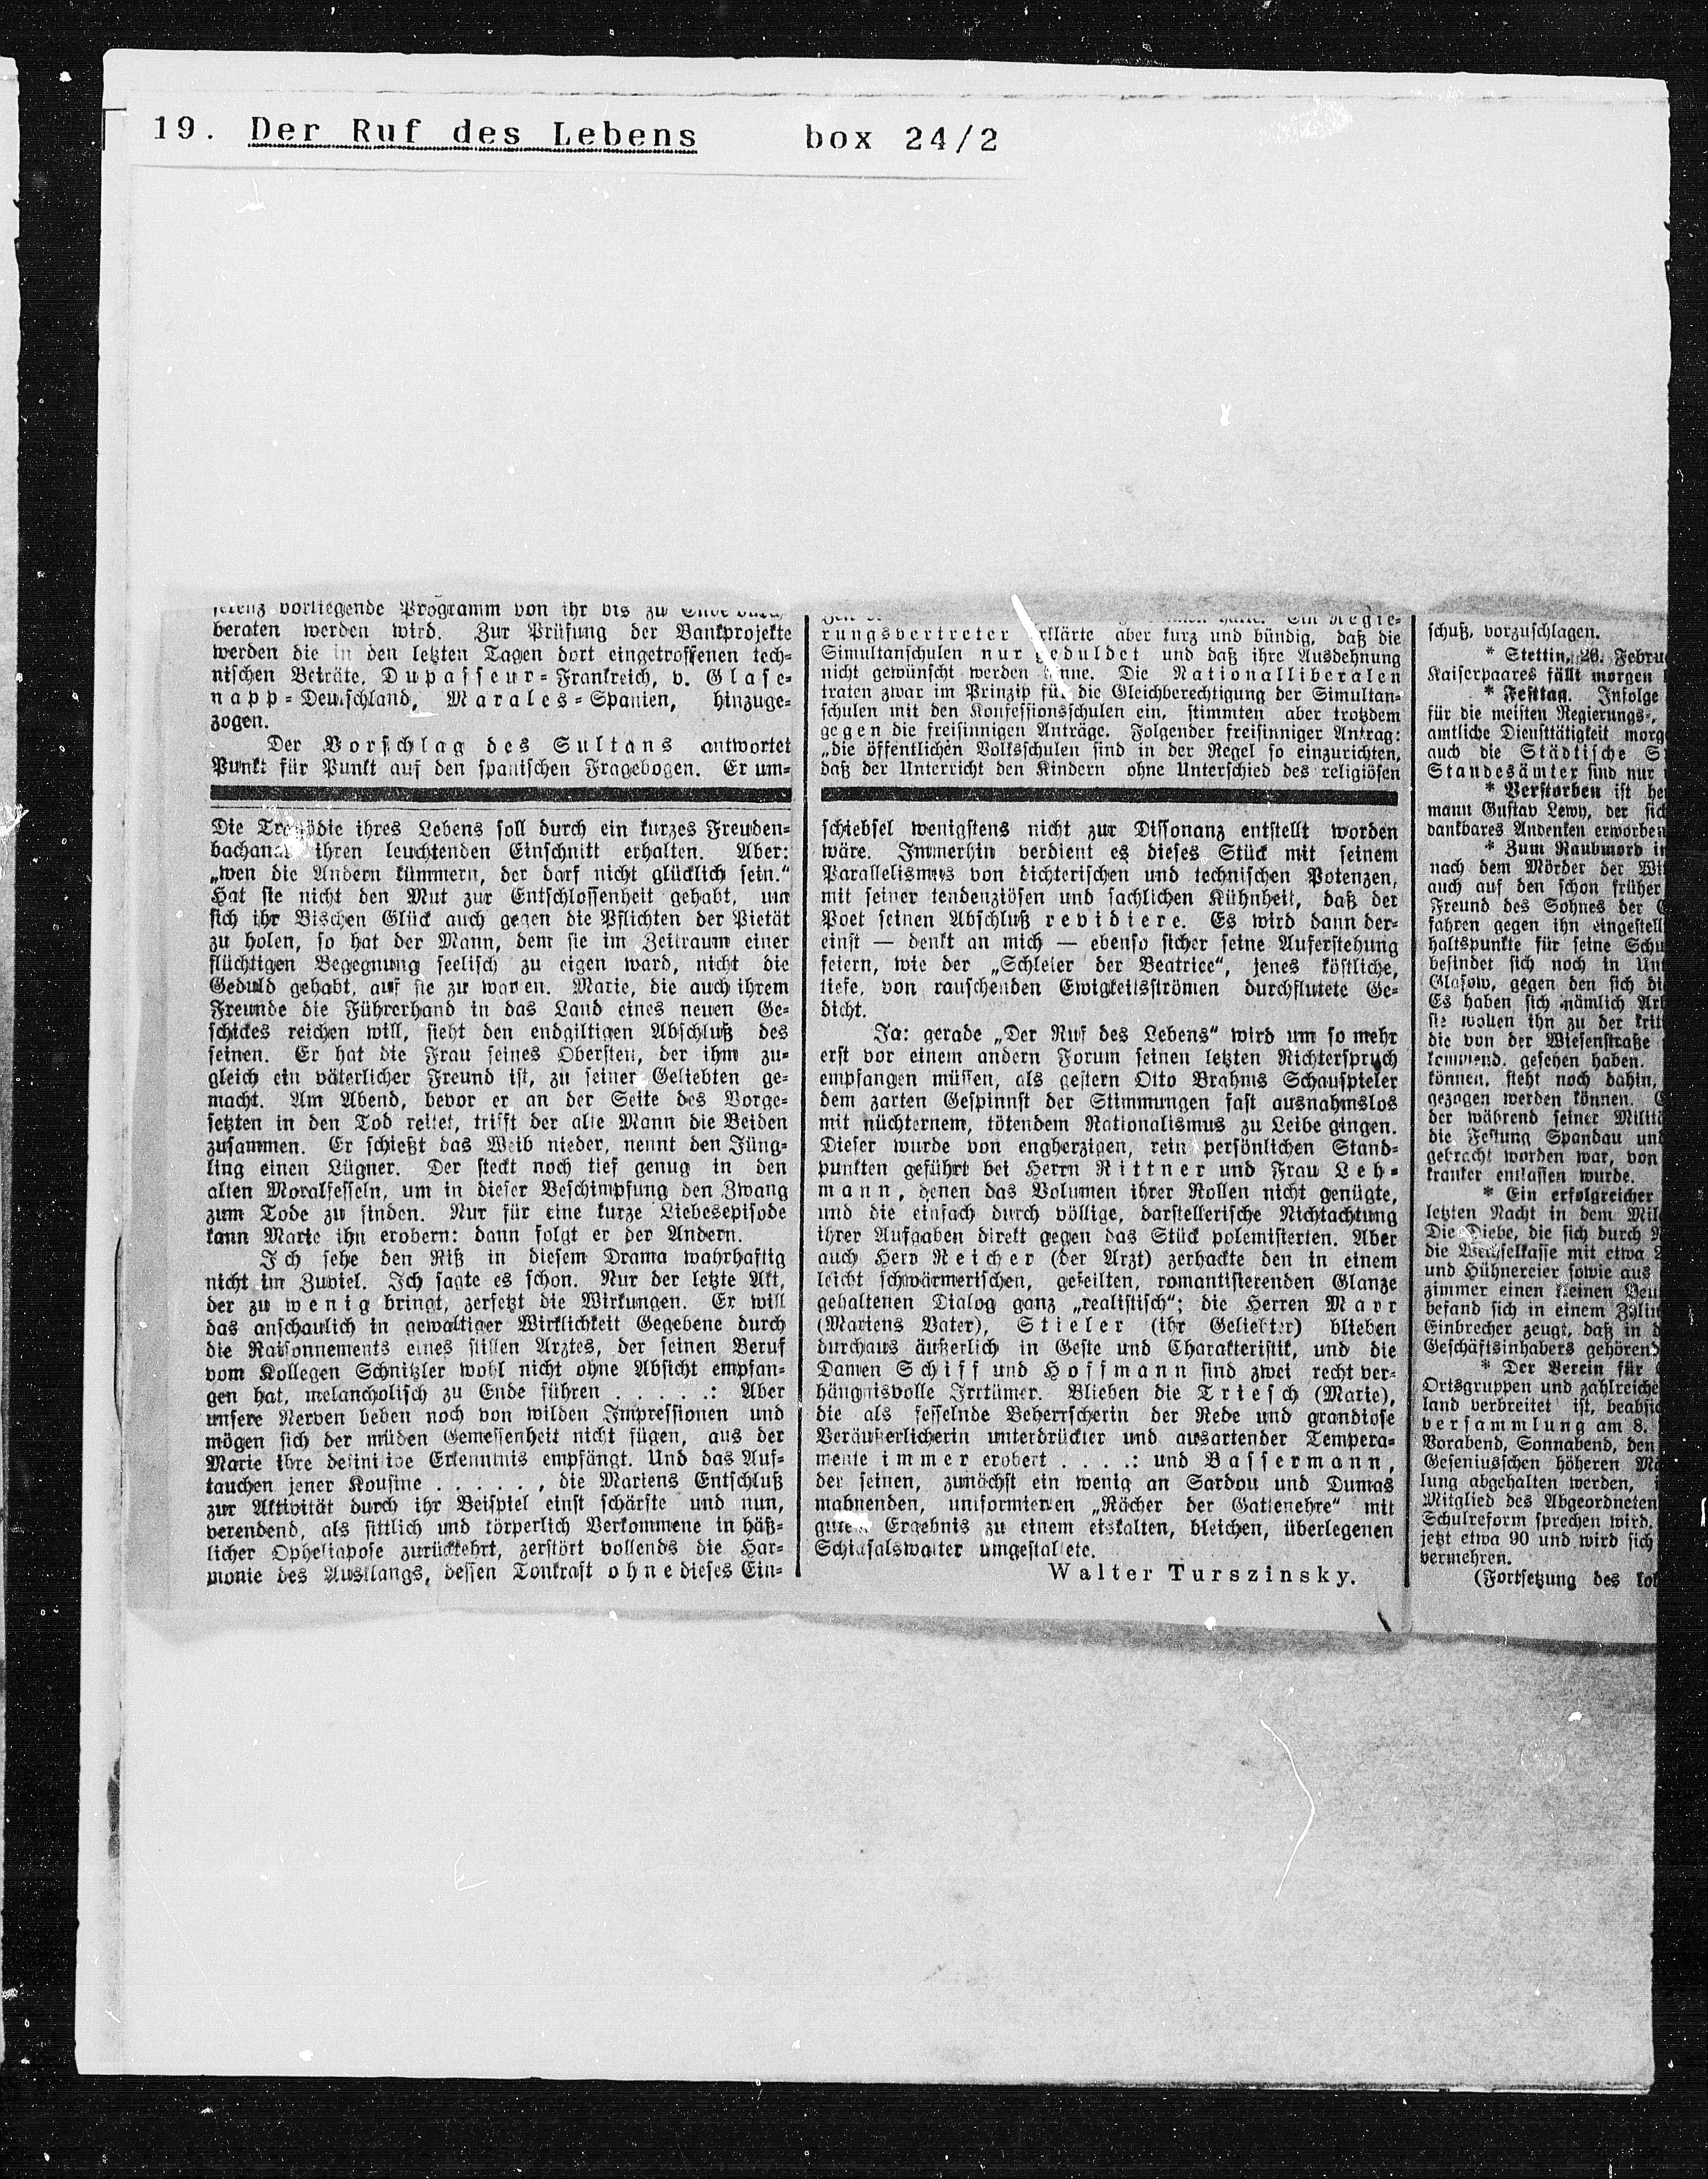 19. Der Ruf des Lebens box 24/2
vorliegende Programm von ihr bis zu Ende
beraten werden wird. Zur Prüfung der Bankprojekte
werden die in den letzten Tagen dort eingetroffenen tech-
nischen Beiräte, Dupasseur-Frankreich, v. Glase-
napp-Deutschland, Marales-Spanien, hinzuge-
zogen.
Der Vorschlag des Sultans antwortet
Punkt für Punkt auf den spanischen Fragebogen. Er um-
Die Tragödie ihres Lebens soll durch ein kurzes Freuden-
bachanal ihren leuchtenden Einschnitt erhalten. Aber:
„wen die Andern kümmern, der darf nicht glücklich sein.“
Hat sie nicht den Mut zur Entschlossenheit gehabt, um
sich ihr Bischen Glück auch gegen die Pflichten der Pietät
zu holen, so hat der Mann, dem sie im Zeitraum einer
flüchtigen Begegnung seelisch zu eigen ward, nicht die
Geduld gehabt, auf sie zu warten. Marie, die auch ihrem
Freunde die Führerhand in das Land eines neuen Ge-
schickes reichen will, sieht den endgiltigen Abschluß des
seinen. Er hat die Frau seines Obersten, der ihm zu-
gleich ein väterlicher Freund ist, zu seiner Geliebten ge-
macht. Am Abend, bevor er an der Seite des Vorge-
setzten in den Tod reitet, trifft der alte Mann die Beiden
zusammen. Er schießt das Weib nieder, nennt den Jüng-
ling einen Lügner. Der steckt noch tief genug in den
alten Moralfesseln, um in dieser Beschimpfung den Zwang
zum Tode zu finden. Nur für eine kurze Liebesepisode
kann Marie ihn erobern: dann folgt er der Andern.
Ich sehe den Riß in diesem Drama wahrhaftig
nicht im Zuviel. Ich sagte es schon. Nur der letzte Akt,
der zu wenig bringt, zersetzt die Wirkungen. Er will
das anschaulich in gewaltiger Wirklichkeit Gegebene durch
die Raisonnements eines stillen Arztes, der seinen Beruf
vom Kollegen Schnitzler wohl nicht ohne Absicht empfan-
gen hat, melancholisch zu Ende führen . . . . .: Aber
unsere Nerven beben noch von wilden Impressionen und
mögen sich der müden Gemessenheit nicht fügen, aus der
Marie ihre definitive Erkenntnis empfängt. Und das Auf-
tauchen jener Kousine . . . . . , die Mariens Entschluß
zur Aktivität durch ihr Beispiel einst schärfte und nun,
verendend, als sittlich und körperlich Verkommene in häß-
licher Opheliapose zurückkehrt, zerstört vollends die Har-
monie des Ausklangs, dessen Tonkraft ohne dieses Ein-
Ein Regie-
rungsvertreter erklärte aber kurz und bündig, daß die
Simultanschulen nur geduldet und daß ihre Ausdehnung
nicht gewünscht werden könne. Die Nationalliberalen
traten zwar im Prinzip für die Gleichberechtigung der Simultan-
schulen mit den Konfessionsschulen ein, stimmten aber trotzdem
gegen die freisinnigen Anträge. Folgender freisinniger Antrag:
„die öffentlichen Volksschulen sind in der Regel so einzurichten,
daß der Unterricht den Kindern ohne Unterschied des religiösen
schiebsel wenigstens nicht zur Dissonanz entstellt worden
wäre. Immerhin verdient es dieses Stück mit seinem
Parallelismus von dichterischen und technischen Potenzen,
mit seiner tendenziösen und sachlichen Kühnheit, daß der
Poet seinen Abschluß revidiere. Es wird dann der-
einst — denkt an mich — ebenso sicher seine Auferstehung
feiern, wie der „Schleier der Beatrice“, jenes köstliche,
tiefe, von rauschenden Ewigkeitsströmen durchflutete Ge-
dicht.
Ja: gerade „Der Ruf des Lebens“ wird um so mehr
erst vor einem andern Forum seinen letzten Richterspruch
empfangen müssen, als gestern Otto Brahms Schauspieler
dem zarten Gespinnst der Stimmungen fast ausnahmslos
mit nüchternem, tötendem Rationalismus zu Leibe gingen.
Dieser wurde von engherzigen, rein persönlichen Stand-
punkten geführt bei Herrn Rittner und Frau Leh-
mann, denen das Volumen ihrer Rollen nicht genügte,
und die einfach durch völlige, darstellerische Nichtachtung
ihrer Aufgaben direkt gegen das Stück polemisierten. Aber
auch Herr Reicher (der Arzt) zerhackte den in einem
leicht schwärmerischen, gefeilten, romantisierenden Glanze
gehaltenen Dialog ganz „realistisch“; die Herren Marr
(Mariens Vater), Stieler (ihr Geliebter) blieben
durchaus äußerlich in Geste und Charakteristik, und die
Damen Schiff und Hoffmann sind zwei recht ver-
hängnisvolle Irrtümer. Blieben die Triesch (Marie),
die als fesselnde Beherrscherin der Rede und grandiose
Veräußerlicherin unterdrückter und ausartender Tempera-
mente immer erobert . . . .: und Bassermann,
der seinen, zunächst ein wenig an Sardou und Dumas
mahnenden, uniformierten „Rächer der Gattenehre“ mit
gutem Ergebnis zu einem eiskalten, bleichen, überlegenen
Schicksalswalter umgestaltete.
Walter Turszinsky.
schuß, vorzuschlagen.
* Stettin, 26. Febru
Kaiserpaares fällt morgen
* Festtag. Infolge
für die meisten Regierungs-,
amtliche Diensttätigkeit morg
auch die Städtische S
Standesämter sind nur
* Verstorben ist he
mann Gustav Lewy, der sich
dankbares Andenken erworben
* Zum Raubmord in
nach dem Mörder der Wi
auch auf den schon früher
Freund des Sohnes der
fahren gegen ihn eingestell
haltspunkte für seine Schu
befindet sich noch in Unt
Glasow, gegen den sich di
Es haben sich nämlich Arb
sie wollen ihn zu der krit
die von der Wiesenstraße
kommend, gesehen haben.
können, steht noch dahin,
gezogen werden können.
der während seiner Militä
die Festung Spandau und
gebracht worden war, von
kranker entlassen wurde.
* Ein erfolgreicher
letzten Nacht in dem Mil
Die Diebe, die sich durch
die Wechselkasse mit etwa
und Hühnereier sowie aus
zimmer einen kleinen Beu
befand sich in einem Zylin
Einbrecher zeugt, daß in d
Geschäftsinhabers gehören
* Der Verein für
Ortsgruppen und zahlreiche
land verbreitet ist, beabsic
versammlung am 8.
Vorabend, Sonnabend, den
Geseniusschen höheren Mä
lung abgehalten werden,
Mitglied des Abgeordneten
Schulreform sprechen wird.
jetzt etwa 90 und wird sich
vermehren.
(Fortsetzung des lok